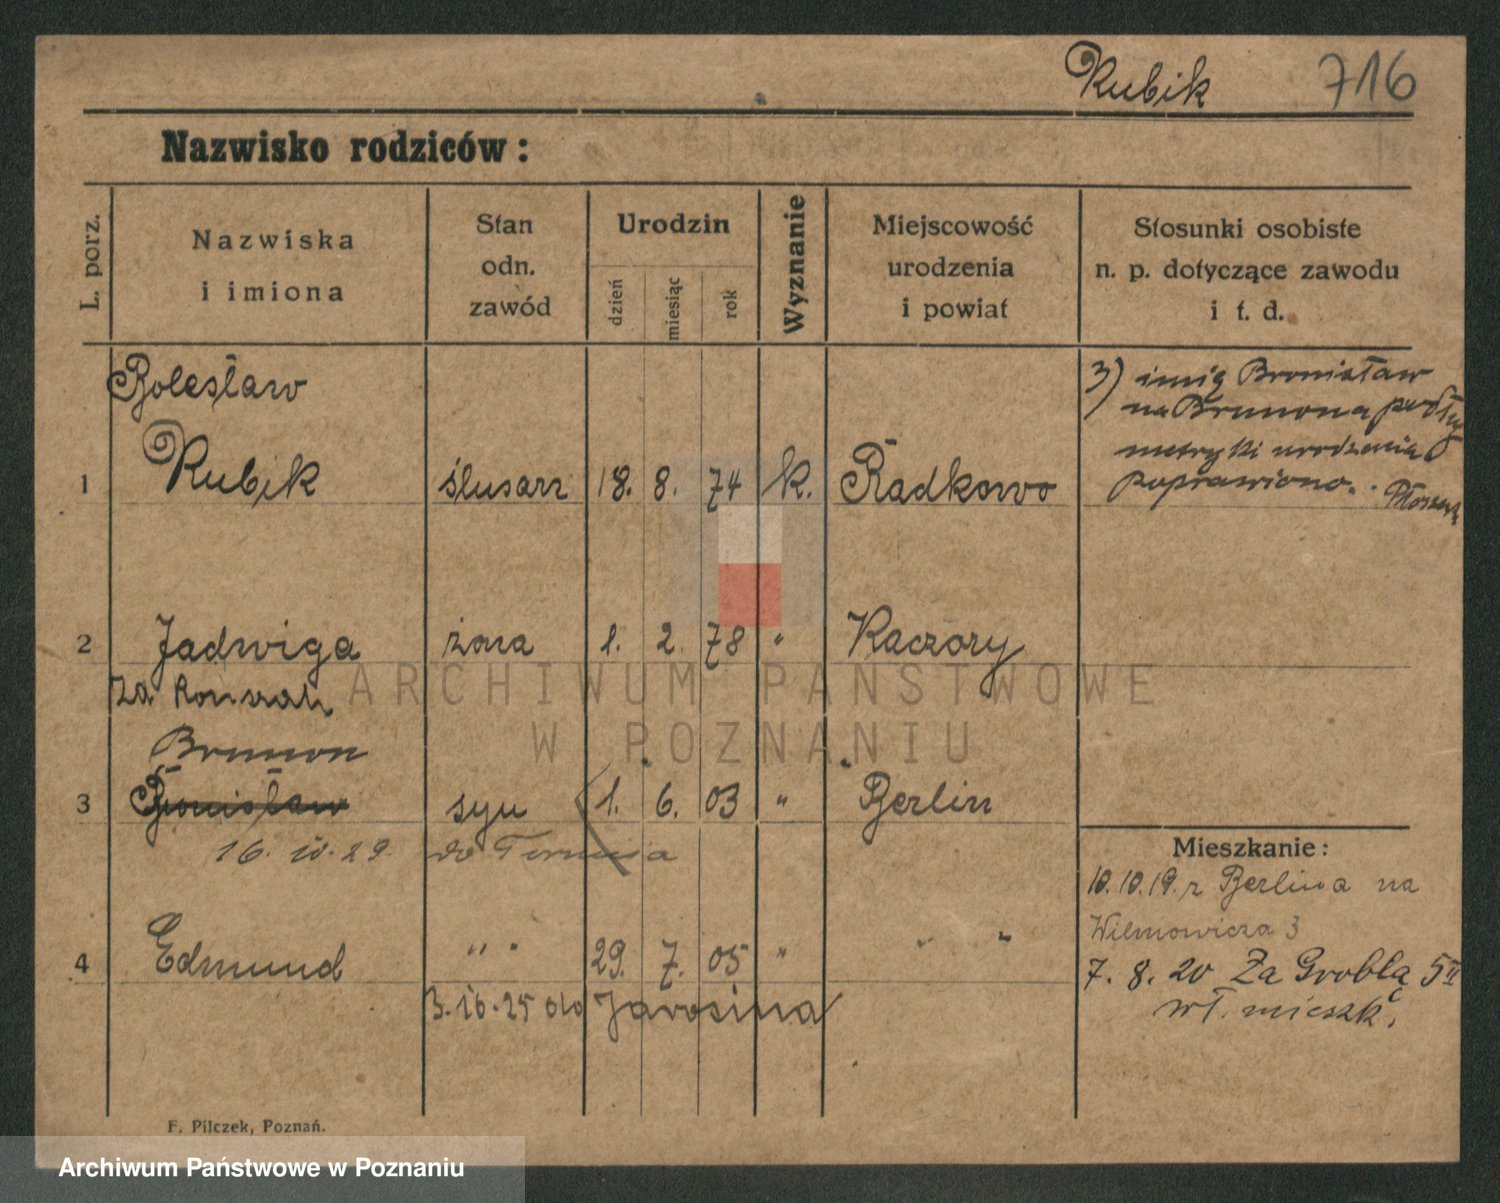 Rubik 716
Nazwisko rodziców:
L. porz.
Nazwiska
i imiona
Stan
odn.
zawód
Urodzin
dzień
miesiąc
rok
Wyznanie
Miejscowość
urodzenia
i powiat
Stosunki osobiste
n. p. dotyczące zawodu
i t. d.
Bolesław
1 Rubik ślusarz 18. 8. 74 k. Radkowo
3) imię Bronisław
na Brunona podług
metryki urodzenia
poprawiono.
2 Jadwiga żona 1. 2. 78 " Kaczory
za
Brunon
3 Bronisław syn 1. 6. 03 " Berlin
16. 10. 29. do Torunia
4 Edmund " " 29. 7. 05 " " "
3.10.25 do Jarosina
Mieszkanie:
10.10.19. z Berlina na
Wilmowicza 3
7. 8. 20 Za Groblą 5 II
wł. mieszk.
F. Pilczek, Poznań.
ARCHIWUM PAŃSTWOWE
W POZNANIU
Archiwum Państwowe w Poznaniu